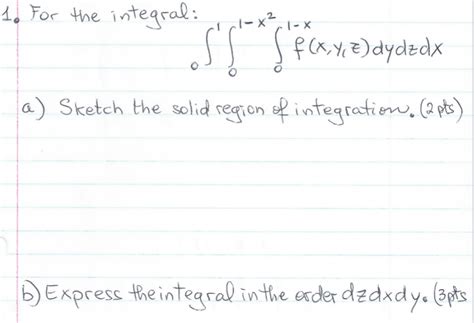 1. For the integral: ∫₀¹ ∫₀^(1-x²) ∫₀^(1-x) f(x,y,z) dy dz dx
a) Sketch the solid region of integration. (2 pts)
b) Express the integral in the order dz dx dy. (3 pts